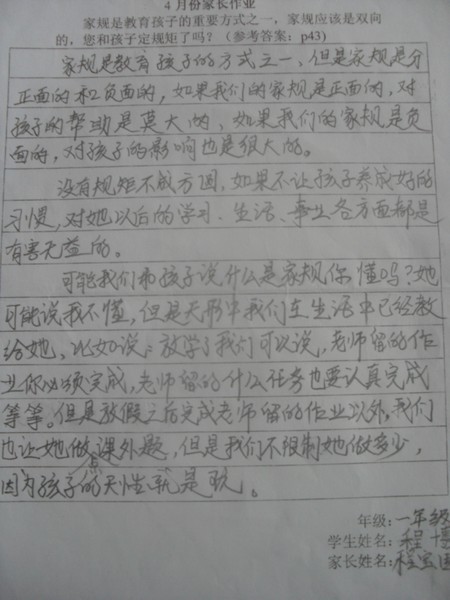 4月份家长作业
家规是教育孩子的重要方式之一，家规应该是双向
的，您和孩子定规矩了吗？（参考答案：p43）
家规是教育孩子的方式之一，但是家规是分
正面的和负面的，如果我们的家规是正面的，对
孩子的帮助是莫大的，如果我们的家规是负
面的，对孩子的影响也是很大的。
没有规矩不成方圆，如果不让孩子养成好的
习惯，对她以后的学习、生活、事业各方面都是
有害无益的。
可能我们和孩子说什么是家规你懂吗？她
可能说我不懂，但是无形中我们在生活中已经教
给她，比如说：放学了我们可以说，老师留的作
业你必须完成，老师留的什么任务也要认真完成
等等。但是放假之后完成老师留的作业以外，我们
也让她做点课外题，但是我们不限制她做多少，
因为孩子的天性就是玩。
年级：一年级
学生姓名：程博
家长姓名：程宝国